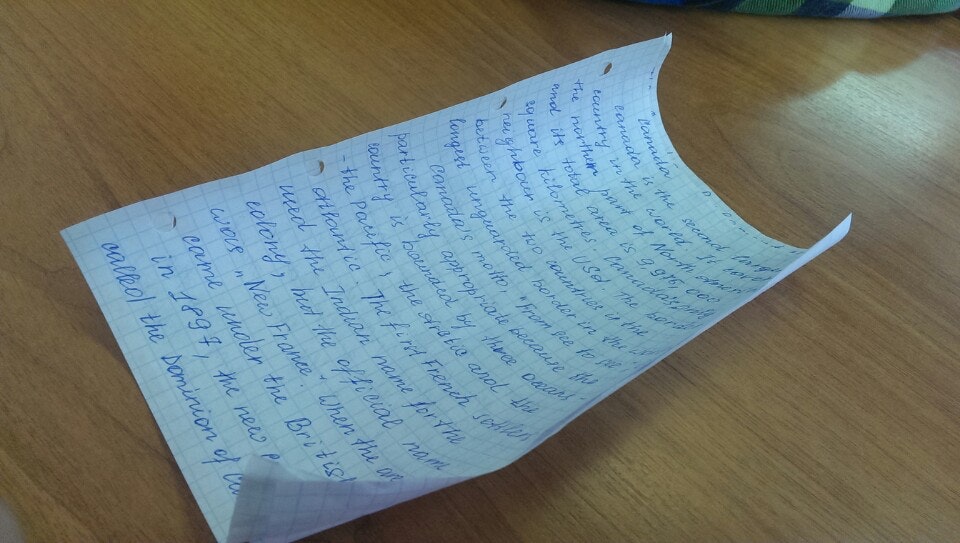 "Canada"
Canada is the second
country in the world. It
the northern part of North
and its total area is 9,975,000
square kilometres. Canada's only
neighbour is the USA. The border
between the two countries is the
longest unguarded border in the
Canada's motto "From sea to
particularly appropriate because the
country is bounded by three
- the Pacific, the Arctic and the
Atlantic. The first French settlers
used the Indian name for the
colony, but the official
was "New France. When the
came under the
in 1897, the new
called the Dominion of